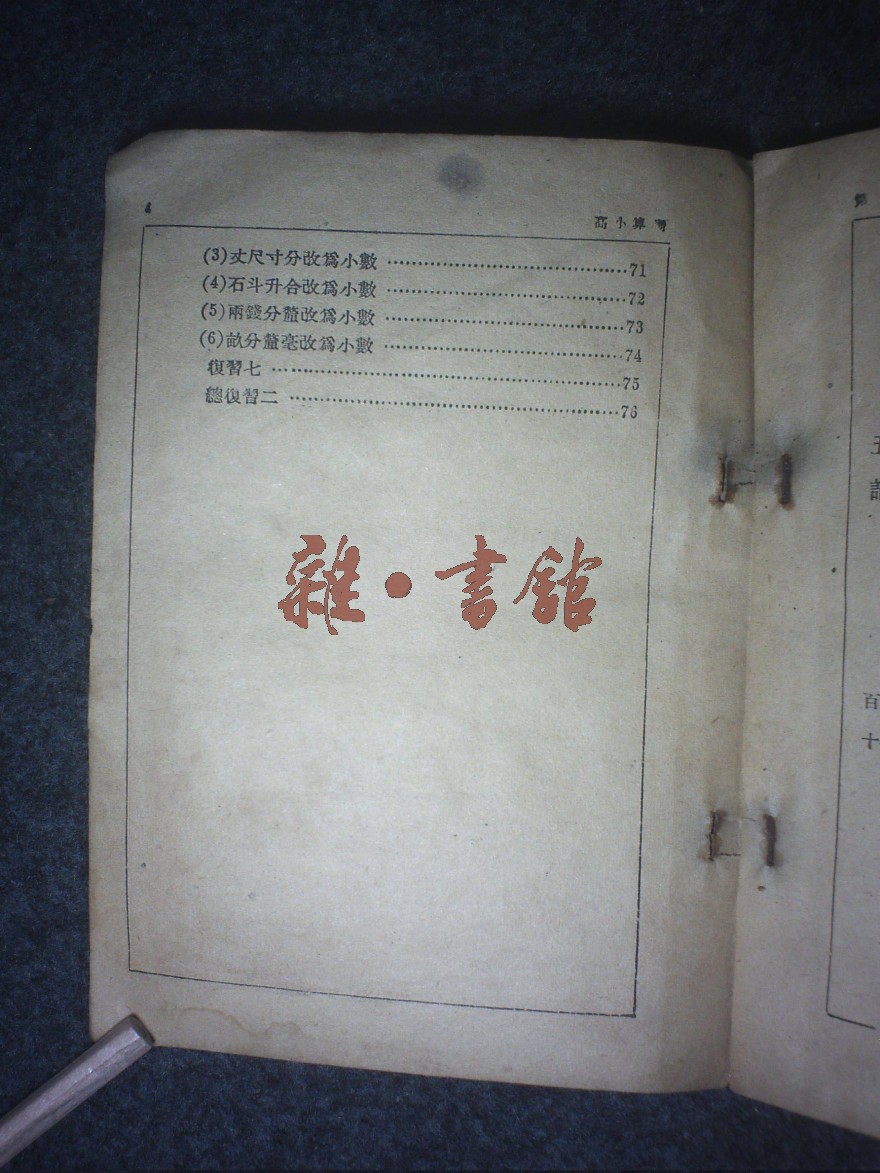 4
高小算術
(3)丈尺寸分改爲小數 ⋯⋯⋯⋯⋯⋯⋯⋯⋯⋯ 71
(4)石斗升合改爲小數 ⋯⋯⋯⋯⋯⋯⋯⋯⋯⋯ 72
(5)兩錢分釐改爲小數 ⋯⋯⋯⋯⋯⋯⋯⋯⋯⋯ 73
(6)畝分釐毫改爲小數 ⋯⋯⋯⋯⋯⋯⋯⋯⋯⋯ 74
復習七 ⋯⋯⋯⋯⋯⋯⋯⋯⋯⋯⋯⋯⋯⋯ 75
總復習二 ⋯⋯⋯⋯⋯⋯⋯⋯⋯⋯⋯⋯⋯ 76
雜·書館
百
十